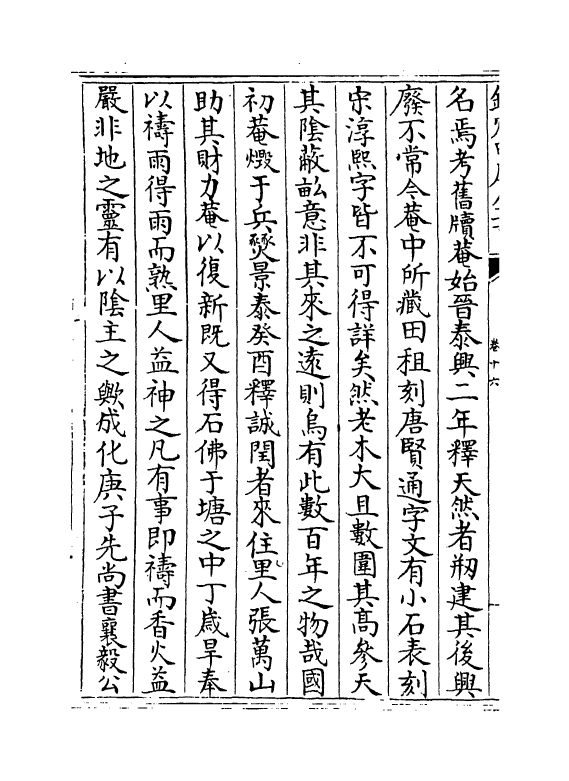 名焉考舊牘菴始晉泰興二年釋天然者剏建其後興
廢不常今菴中所藏田租刻唐賢通字文有小石表刻
宋淳熙字皆不可得詳矣然老木大且數圍其髙參天
其陰蔽畝意非其來之逺則烏有此數百年之物哉國
初菴燬于兵燹景泰癸酉釋誠閏者來住里人張萬山
助其財力菴以復新既又得石佛于塘之中丁歲旱奉
以禱雨得雨而孰里人益神之凡有事即禱而香火益
嚴非地之靈有以陰主之歟成化庚子先尚書襄毅公
卷十六